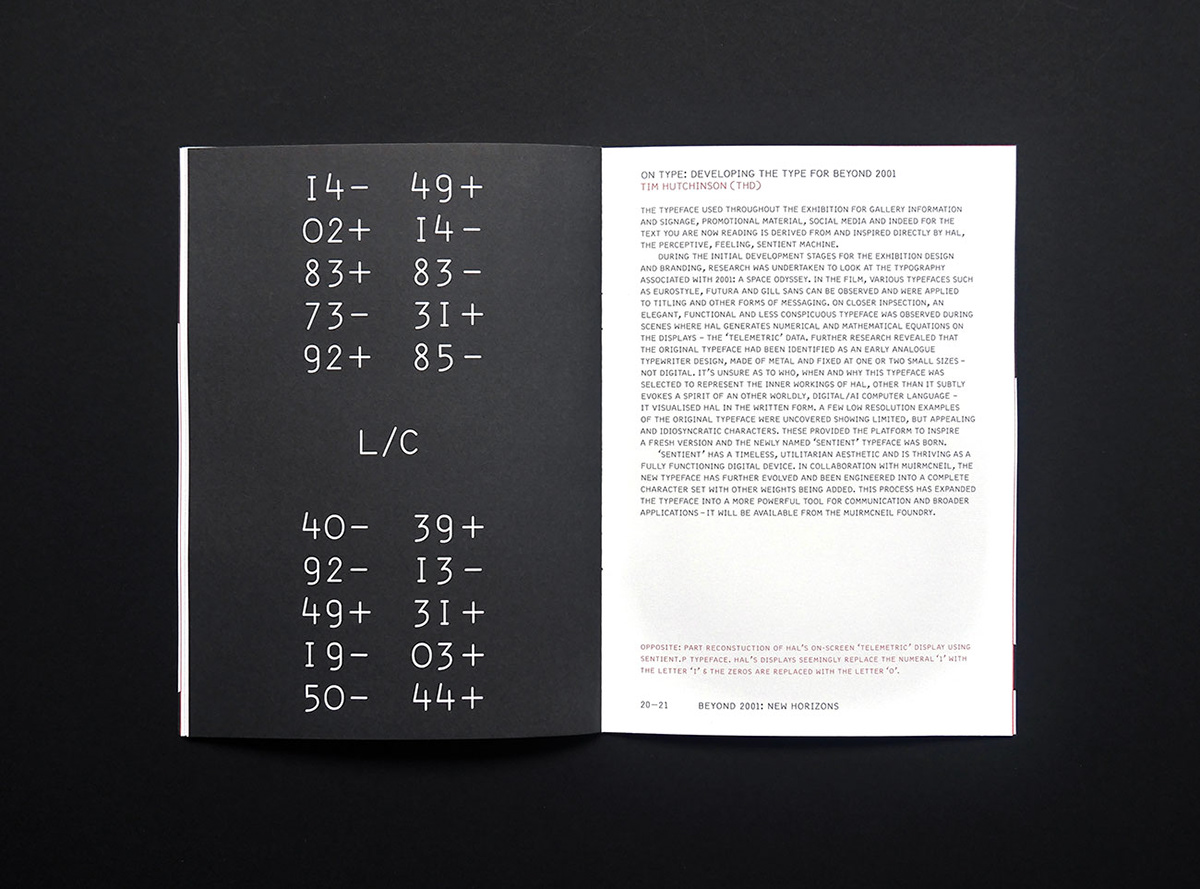 I4- 49+
O2+ I4-
83+ 83-
73- 3I+
92+ 85-
L/C
4O- 39+
92- I3-
49+ 3I+
I9- O3+
5O- 44+
ON TYPE: DEVELOPING THE TYPE FOR BEYOND 2001
TIM HUTCHINSON (THD)
THE TYPEFACE USED THROUGHOUT THE EXHIBITION FOR GALLERY INFORMATION
AND SIGNAGE, PROMOTIONAL MATERIAL, SOCIAL MEDIA AND INDEED FOR THE
TEXT YOU ARE NOW READING IS DERIVED FROM AND INSPIRED DIRECTLY BY HAL,
THE PERCEPTIVE, FEELING, SENTIENT MACHINE.
DURING THE INITIAL DEVELOPMENT STAGES FOR THE EXHIBITION DESIGN
AND BRANDING, RESEARCH WAS UNDERTAKEN TO LOOK AT THE TYPOGRAPHY
ASSOCIATED WITH 2001: A SPACE ODYSSEY. IN THE FILM, VARIOUS TYPEFACES SUCH
AS EUROSTYLE, FUTURA AND GILL SANS CAN BE OBSERVED AND WERE APPLIED
TO TITLING AND OTHER FORMS OF MESSAGING. ON CLOSER INPSECTION, AN
ELEGANT, FUNCTIONAL AND LESS CONSPICUOUS TYPEFACE WAS OBSERVED DURING
SCENES WHERE HAL GENERATES NUMERICAL AND MATHEMATICAL EQUATIONS ON
THE DISPLAYS – THE ‘TELEMETRIC’ DATA. FURTHER RESEARCH REVEALED THAT
THE ORIGINAL TYPEFACE HAD BEEN IDENTIFIED AS AN EARLY ANALOGUE
TYPEWRITER DESIGN, MADE OF METAL AND FIXED AT ONE OR TWO SMALL SIZES –
NOT DIGITAL. IT’S UNSURE AS TO WHO, WHEN AND WHY THIS TYPEFACE WAS
SELECTED TO REPRESENT THE INNER WORKINGS OF HAL, OTHER THAN IT SUBTLY
EVOKES A SPIRIT OF AN OTHER WORLDLY, DIGITAL/AI COMPUTER LANGUAGE –
IT VISUALISED HAL IN THE WRITTEN FORM. A FEW LOW RESOLUTION EXAMPLES
OF THE ORIGINAL TYPEFACE WERE UNCOVERED SHOWING LIMITED, BUT APPEALING
AND IDIOSYNCRATIC CHARACTERS. THESE PROVIDED THE PLATFORM TO INSPIRE
A FRESH VERSION AND THE NEWLY NAMED ‘SENTIENT’ TYPEFACE WAS BORN.
‘SENTIENT’ HAS A TIMELESS, UTILITARIAN AESTHETIC AND IS THRIVING AS A
FULLY FUNCTIONING DIGITAL DEVICE. IN COLLABORATION WITH MUIRMCNEIL, THE
NEW TYPEFACE HAS FURTHER EVOLVED AND BEEN ENGINEERED INTO A COMPLETE
CHARACTER SET WITH OTHER WEIGHTS BEING ADDED. THIS PROCESS HAS EXPANDED
THE TYPEFACE INTO A MORE POWERFUL TOOL FOR COMMUNICATION AND BROADER
APPLICATIONS – IT WILL BE AVAILABLE FROM THE MUIRMCNEIL FOUNDRY.
OPPOSITE: PART RECONSTUCTION OF HAL’S ON-SCREEN ‘TELEMETRIC’ DISPLAY USING
SENTIENT.P TYPEFACE. HAL’S DISPLAYS SEEMINGLY REPLACE THE NUMERAL ‘1’ WITH
THE LETTER ‘I’ & THE ZEROS ARE REPLACED WITH THE LETTER ‘O’.
20–21 BEYOND 2001: NEW HORIZONS